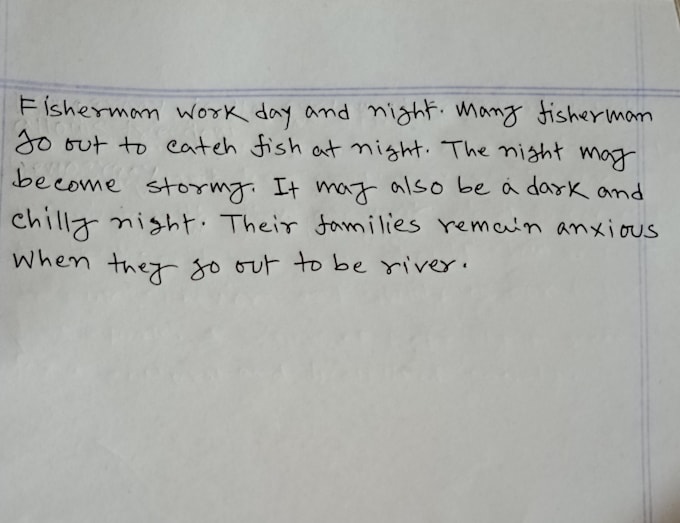 Fisherman work day and night. Many fisherman
go out to catch fish at night. The night may
become stormy. It may also be a dark and
chilly night. Their families remain anxious
When they go out to be river.